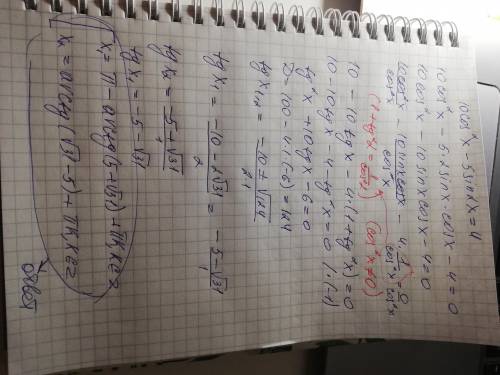 10cos²x - 5sin2x = 4
10cos²x - 5·2sinx·cosx - 4 = 0
10cos²x - 10sinxcosx - 4 = 0
10cos²x/cos²x - 10sinxcosx/cos²x - 4·1/cos²x = 0/cos²x
(1+tg²x = 1/cos²x) (cos²x≠0)
10 - 10tgx - 4·(1+tg²x) = 0
10 - 10tgx - 4 - 4tg²x = 0 |:(-1)
tg²x + 10tgx - 6 = 0
D = 100 - 4·1·(-6) = 124
tgx₁,₂ = -10 ± √124 / 2·1
tgx₁ = -10 - 2√31 / 2 = -5 - √31 / 1
tgx₂ = -5 + √31 / 1
tgx₁ = -5 - √31
x₁ = π - arctg(5+√31) + πk, k∈Z
x₂ = arctg(√31 - 5) + πk, k∈Z